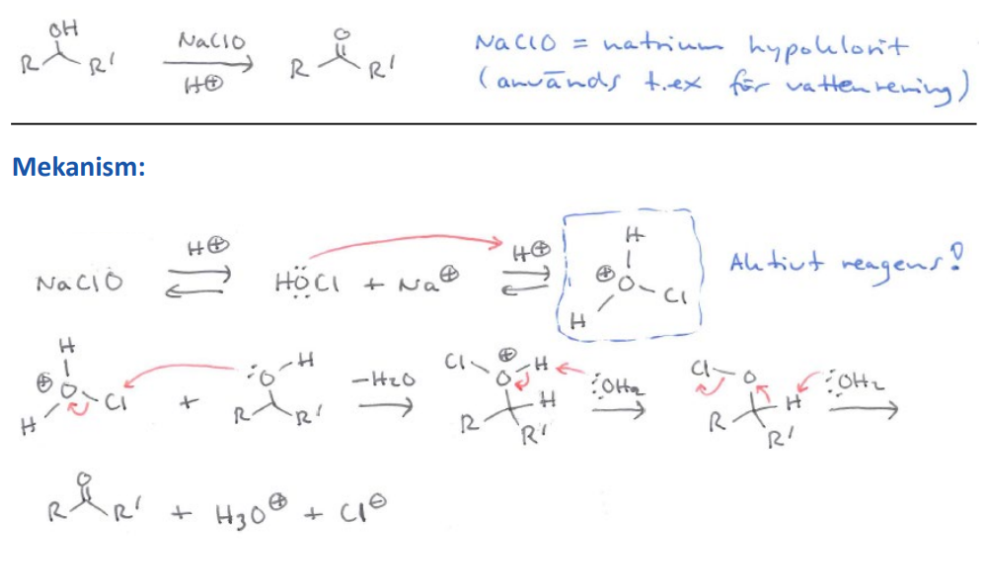 OH
R R' NaClO H⊕ O R R' NaClO = natrium hypoklorit
(används t.ex för vattenrening)
Mekanism:
NaClO H⊕ HOCl + Na⊕ H⊕ H ⊕ O Cl H Aktivt reagens!
H ⊕ O Cl H + :O H R R' -H2O Cl ⊕ O H H R R' :OH2 Cl O H R R' :OH2
O R R' + H3O⊕ + Cl⊖